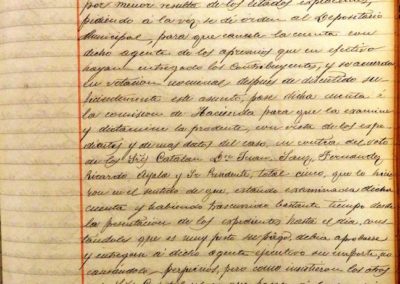 por menor resulta de los citados expedientes,
pidiendo á la vez se dé orden al Depositario
Municipal, para que cancele la cuenta con
dicho agente de los apremios que en efectivo
hayan entregado los contribuyentes, y se acuerda
en votacion nominal despues de discutido su-
ficientemente este asunto, pase dicha cuenta á
la comision de Hacienda para que la examine
y dictamine lo prudente, con vista de los expe-
dientes y demas datos del caso, en contra del voto
de los Sres Catalan Dn Juan, Sanz, Fernandez
Ricardo, Ayala y Sr Presidente, total cinco, que lo hicie-
ron en el sentido de que, estando examinada dicha
cuenta y habiendo trascurrido bastante tiempo desde
la presentacion de los expedientes hasta el dia, cons-
tandoles que es muy justo su pago, debia aprobarse
y entregar á dicho agente ejecutivo su importe, no
causandole perjuicios, pero como insistieron los otros